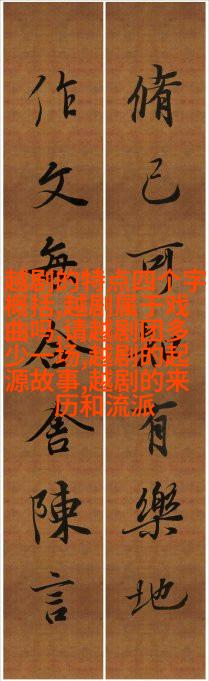 脩己可有樂地
作文無舍陳言
越剧的特点四个字
概括,越剧属于戏
曲吗,请越剧团多
少一场,越剧的起
源故事,越剧的来
历和流派